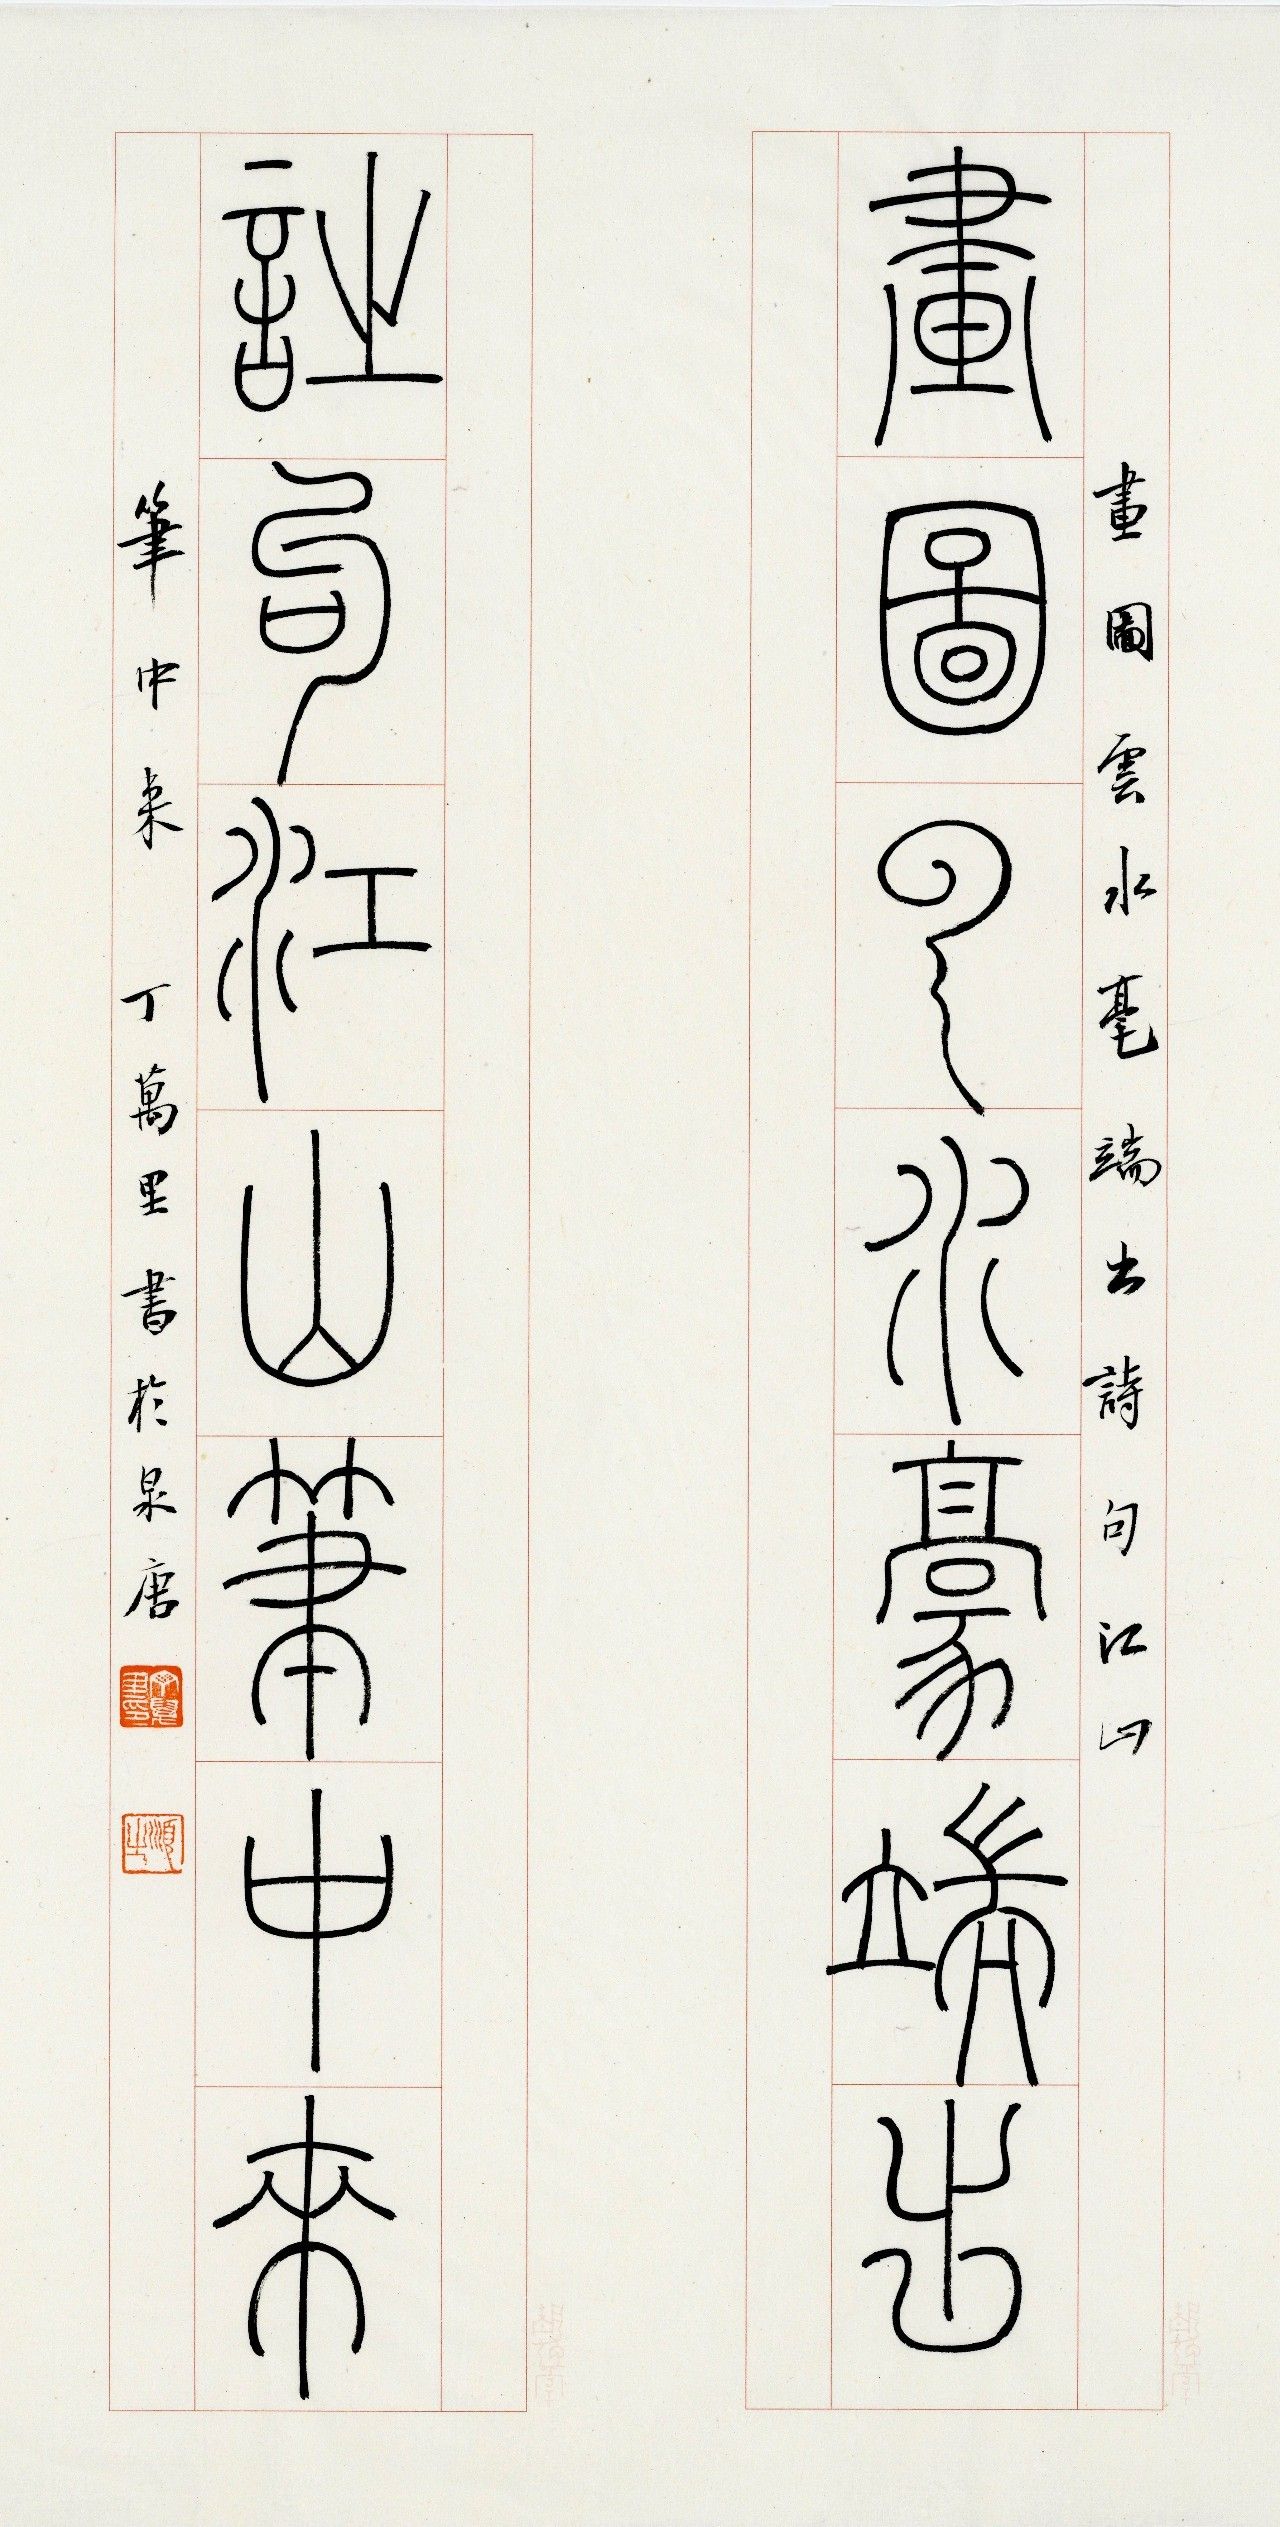 畫圖雲水豪端出
畫圖雲水毫端出詩句江山
詩句江山筆中來
筆中來 丁萬里書於泉唐